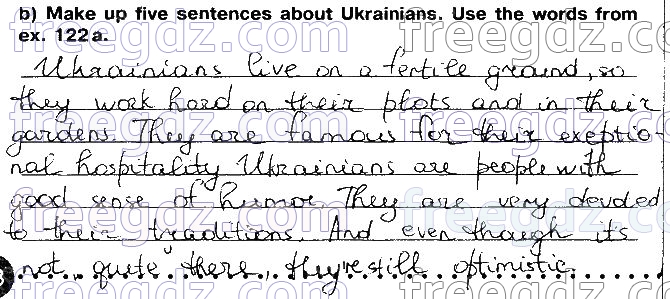 b) Make up five sentences about Ukrainians. Use the words from
ex. 122a.
Ukrainians live on a fertile ground, so
they work hard on their plots and in their
gardens. They are famous for their exeptio-
nal hospitality Ukrainians are people with
good sense of humor. They are very devoded
to their traditions. And even though it's
not quite there, they're still optimistic.